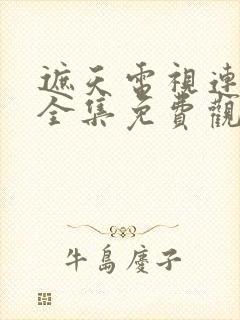 遮天電視連
全集免費觀
牛島慶子